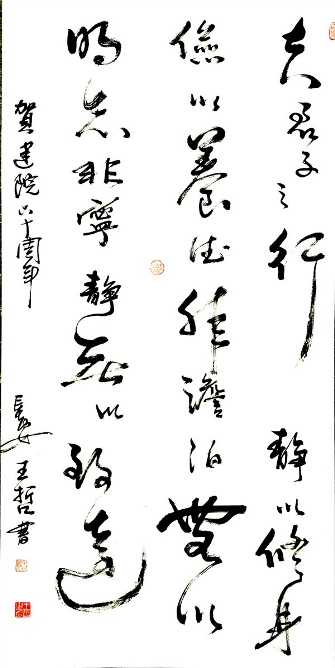 夫君子之行靜以修身
儉以養德非澹泊無以
明志非寧靜無以致遠
賀建院六十周年
長安王哲書